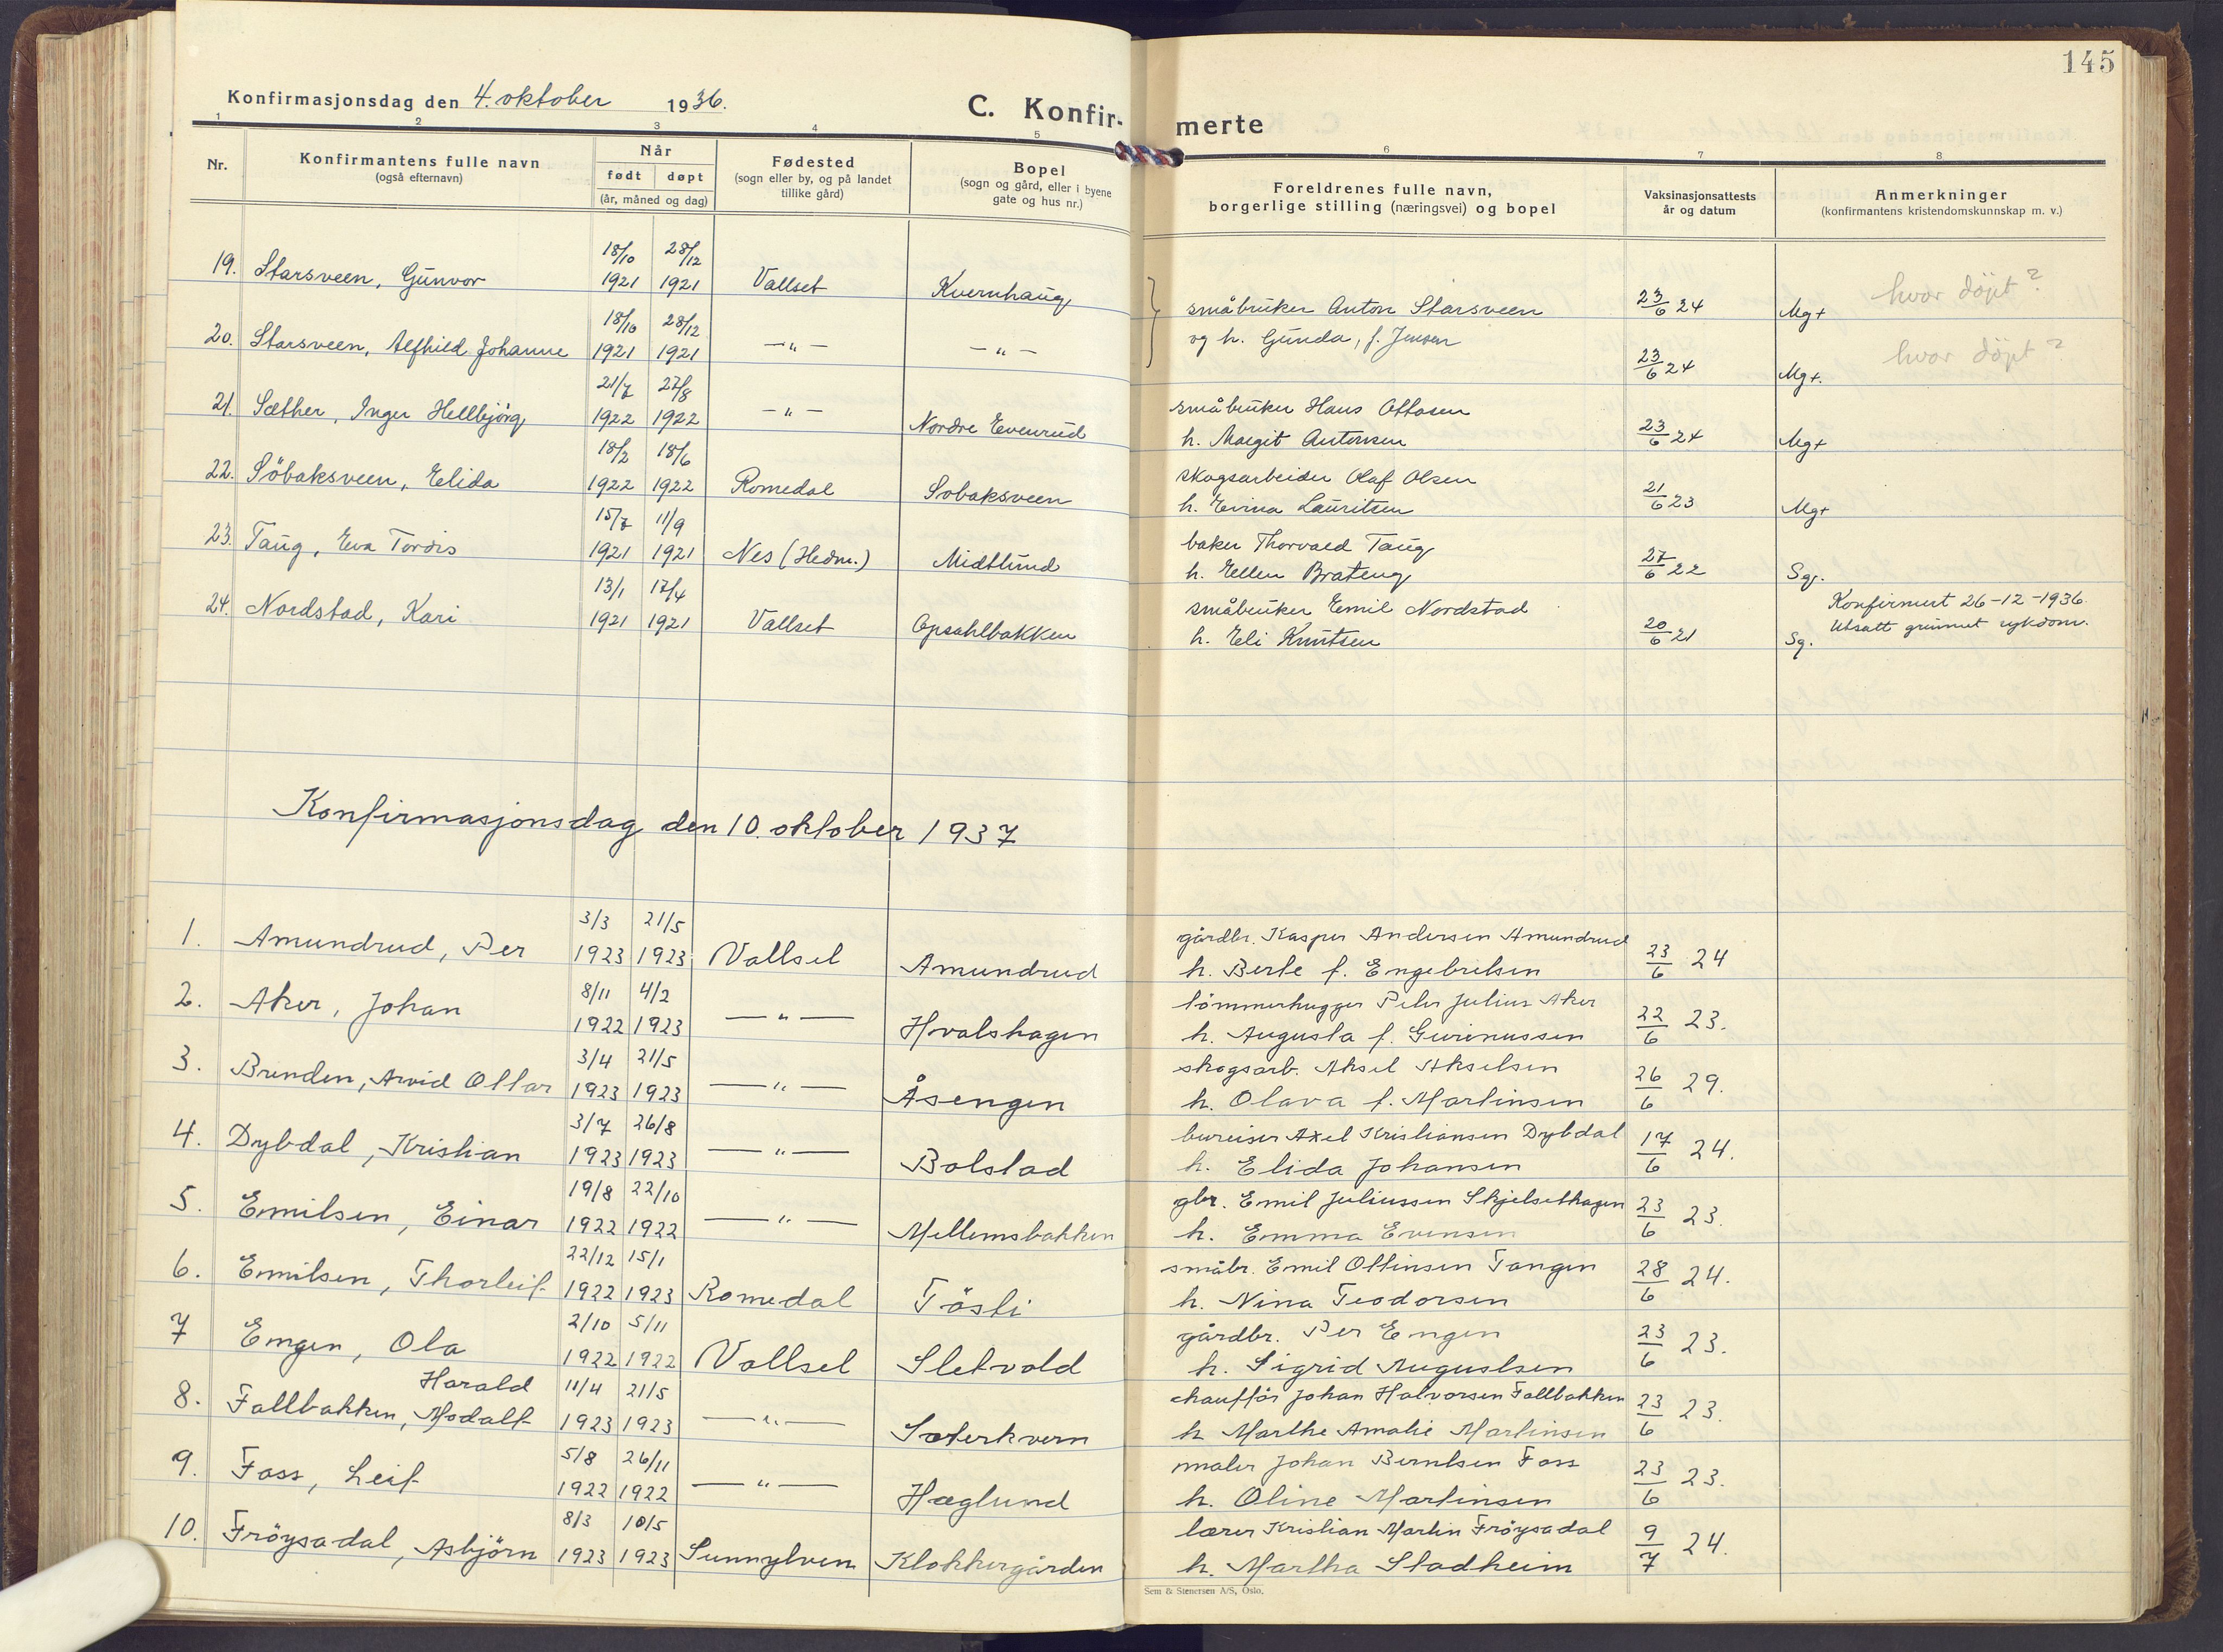 145
Konfirmasjonsdag den 4. oktober 1936.
C. Konfir-
merte
1 2 3 4 5 6 7 8
Nr.
Konfirmantens fulle navn
(også efternavn)
Når
født døpt
(år, måned og dag)
Fødested
(sogn eller by, og på landet
tillike gård)
Bopel
(sogn og gård, eller i byene
gate og hus nr.)
Foreldrenes fulle navn,
borgerlige stilling (næringsvei) og bopel
Vaksinasjonsattests
år og datum
Anmerkninger
(konfirmantens kristendomskunnskap m. v.)
18/10 28/12
19. Starsveen, Gunvor 1921 1921 Vallset Kvernhaug småbruker Anton Starsveen 23/6 24 Mg+ hvor döpt?
og h. Gunda, f. Jensen
18/10 28/12
20. Starsveen, Alfhild Johanne 1921 1921 —"— —"— 23/6 24 Mg+. hvor döpt?
21/7 27/8 småbruker Hans Ottosen
21. Sæther, Inger Hellbjörg 1922 1922 —"— Nordre Evenrud h. Margit Antonsen 23/6 24 Mg+
18/2 18/6 skogsarbeider Olaf Olsen
22. Söbaksveen, Elida 1922 1922 Romedal Sobaksveen h. Evina Lauritsen 21/6 23 Mg+
15/7 11/9 baker Thorvald Taug
23. Taug, Eva Tordis 1921 1921 Nes (Hedm.) Midtlund h. Ellen Brateng 27/6 22 Sg.
13/1 17/4 småbruker Emil Nordstad Konfirmert 26-12-1936.
24. Nordstad, Kari 1921 1921 Vallset Opsahlbakken h. Eli Knutsen 20/6 21 Sg. Utsatt grunnet sykdom.
Konfirmasjonsdag den 10. oktober 1937
3/3 21/5 gårdbr. Kasper Andersen Amundrud
1. Amundrud, Per 1923 1923 Vallset Amundrud h. Berte f. Engebretsen 23/6 24
8/11 4/2 tömmerhugger Peter Julius Aker
2. Aker, Johan 1922 1923 —"— Hvalshagen h. Augusta f. Gurinussen 22/6 23.
3/4 21/5 skogsarb. Aksel Akselsen
3. Brenden, Arvid Ottar 1923 1923 —"— Åsengen h. Olava f. Martinsen 26/6 29.
3/7 26/8 bureiser Axel Kristiansen Dybdal
4. Dybdal, Kristian 1923 1923 —"— Bolstad h. Elida Johansen 17/6 24.
19/8 22/10 gbr. Emil Juliussen Skjelsethagen
5. Emilsen, Einar 1922 1922 —"— Mellemsbakken h. Emma Evensen 23/6 23.
22/12 15/1 småbr. Emil Ottinsen Tangen
6. Emilsen, Thorleif 1922 1923 Romedal Tösti h. Nina Teodorsen 28/6 24.
2/10 5/11 gårdbr. Per Engen
7 Engen, Ola 1922 1922 Vallset Sletvold h. Sigrid Augustsen 23/6 23.
Harald 11/4 21/5 chaufför Johan Halvorsen Fallbakken
8. Fallbakken, Modalf 1923 1923 —"— Sæterkvern h Marthe Amalie Martinsen 23/6 23.
5/8 26/11 maler Johan Berntsen Foss
9. Foss, Leif 1922 1922 —"— Hæglund h. Oline Martinsen 23/6 23.
8/3 10/5 lærer Kristian Martin Fröysadal
10. Fröysadal, Asbjörn 1923 1923 Sunnylven Klokkergården h. Martha Stadheim 9/7 24.
Sem & Stenersen A/S, Oslo.